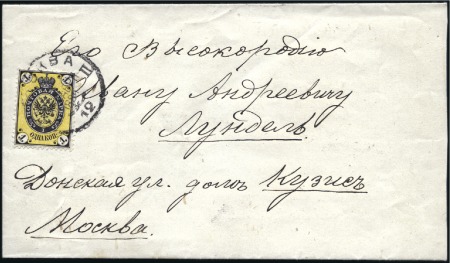 Его Высокородію
Ивану Андреевичу
Лундель
Донская ул. домъ Кузисъ
Москва.
1 1
ОДНА КОП.
1 1